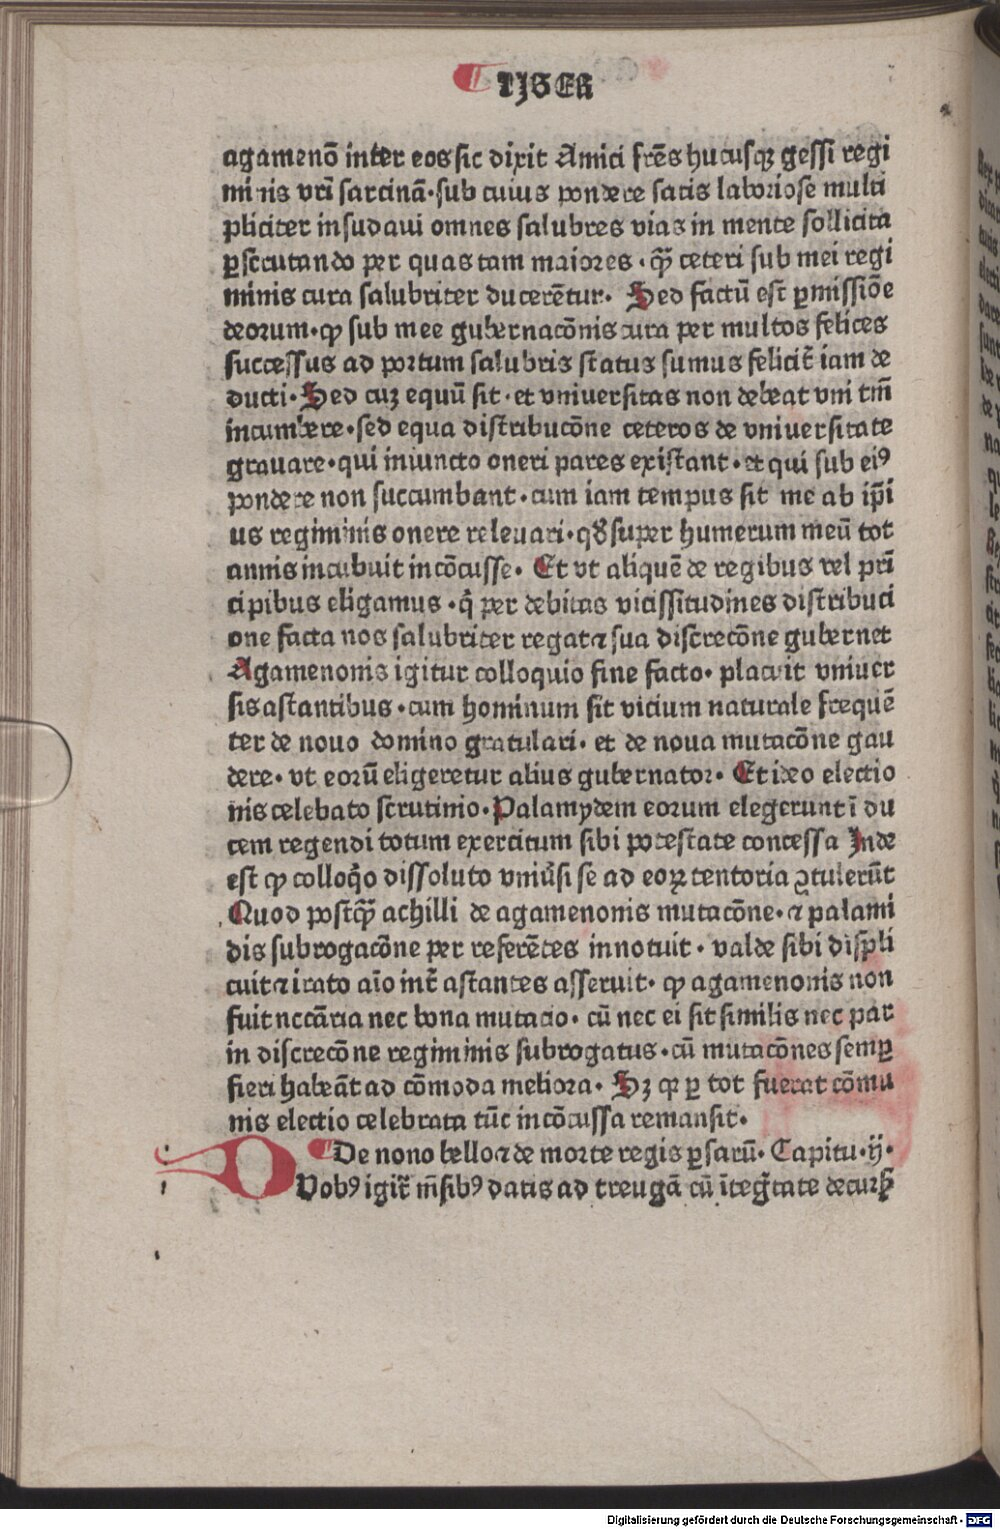 LIBER
agamenō inter eos sic dixit Amici frēs hucusqꝫ gessi regi
minis vrī sarcinā·sub cuius pondere satis laboriose multi
pliciter insudaui omnes salubres vias in mente sollicita
ꝑscrutando per quas tam maiores·qͫ ceteri sub mei regi
minis cura salubriter ducerētur· Sed factū est ꝑmissiōe
deorum·ꝙ sub mee gubernacōnis cura per multos felices
successus ad portum salubris status sumus felicit̄ iam de
ducti·Sed cuꝫ equū sit·et vniuersitas non debeat vni tm̄
incumbere·sed equa distribucōne ceteros de vniuersitate
grauare·qui iniuncto oneri pares existant·et qui sub eiꝰ
pondere non succumbant·cum iam tempus sit me ab ip̄i
us regiminis onere releuari·qd̓ super humerum meū tot
annis incubuit incōcusse· Et vt aliquē de regibus vel prī
cipibus eligamus·q̇ per debitas vicissitudines distribuci
one facta nos salubriter regat⁊ sua discrecōne gubernet
Agamenonis igitur colloquio fine facto·placuit vniuer
sis astantibus·cum hominum sit vicium naturale frequē
ter de nouo domino gratulari·et de noua mutacōne gau
dere·vt eorū eligeretur alius gubernator· Et ideo electio
nis celebato scrutinio·Palamydem eorum elegerunt ī du
cem regendi totum exercitum sibi potestate concessa Inde
est ꝙ colloq̇o dissoluto vniūsi se ad eoꝝ tentoria ꝯtulerūt
Quod postqͫ achilli de agamenonis mutacōne·⁊ palami
dis subrogacōne per referētes innotuit·valde sibi displi
cuit⁊ irato aīo int̄ astantes asseruit·ꝙ agamenonis non
fuit nccāria nec bona mutacio·cū nec ei sit similis nec par
in discrecōne regiminis subrogatus·cū mutacōnes semꝑ
fieri habeāt ad cōmoda meliora· Sꝫ qꝛ ꝑ tot fuerat cōmu
nis electio celebrata tūc incōcussa remansit·
De nono bello⁊ de morte regis ꝑsarū· Capitu·ij·
DVobꝰ igit̄ m̄sibꝰ datis ad treugā cū īteg̃tate decurẜ
Digitalisierung gefördert durch die Deutsche Forschungsgemeinschaft - DFG